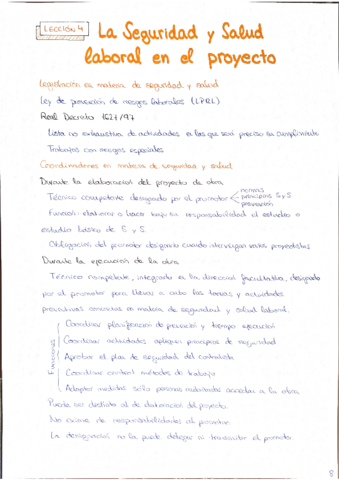 LECCIÓN 4
La Seguridad y Salud
laboral en el proyecto
Legislación en materia de seguridad y salud
Ley de prevención de riesgos laborales (LPRL)
Real Decreto 1627/97
Lista no exhaustiva de actividades en las que será preciso su cumplimiento
Trabajos con riesgos especiales
Coordinadores en materia de seguridad y salud
Durante la elaboración del proyecto de obra
normas
Técnico competente designado por el promotor principios S y S
prevención
Función: elaborar o hacer bajo su responsabilidad el estudio o
estudio básico de S y S.
Obligación del promotor designarlo cuando intervengan varios proyectistas
Durante la ejecución de la obra
Técnico competente, integrado en la dirección facultativa, designado
por el promotor para llevar a cabo las tareas y actividades
preventivas en materia de seguridad y salud laboral.
Funciones
Coordinar planificación de prevención y tiempo ejecución
Coordinar actividades apliquen principios de seguridad
Aprobar el plan de seguridad del contratista
Coordinar control métodos de trabajo
Adoptar medidas sólo personas autorizadas accedan a la obra
Puede ser distinto al de elaboración del proyecto.
No exime de responsabilidades al promotor.
La designación no la puede delegar ni transmitir el promotor.
8